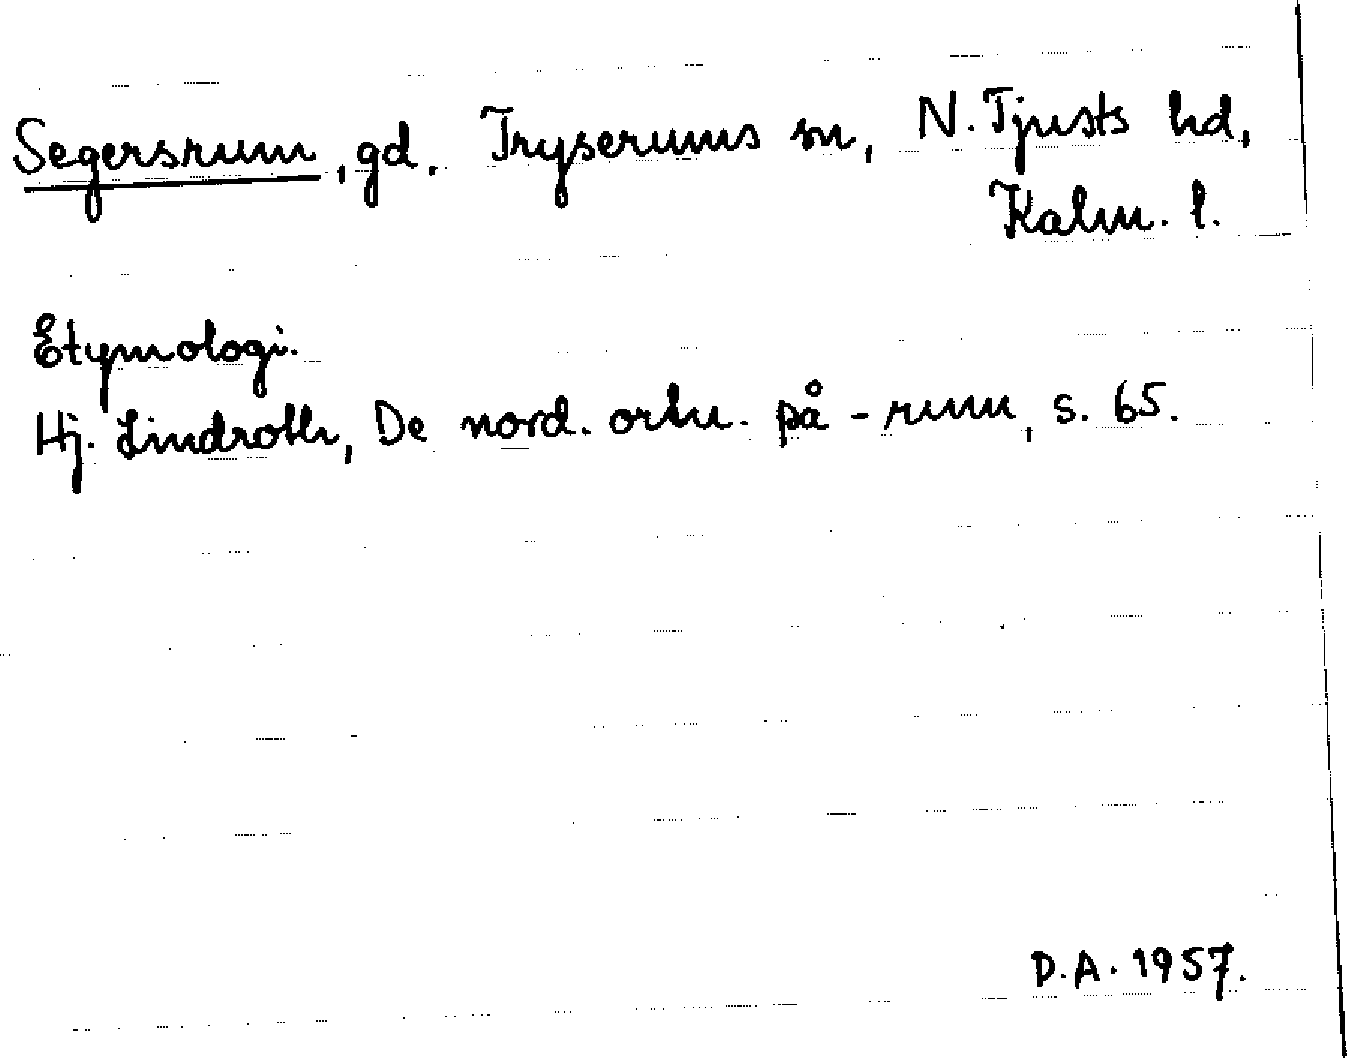 Segersrum, gd. Tryserums sn, N. Tjusts hd,
Kalm. l.
Etymologi.
Hj. Lindroth, De nord. ortn. på -rum, s. 65.
D.A. 1957.